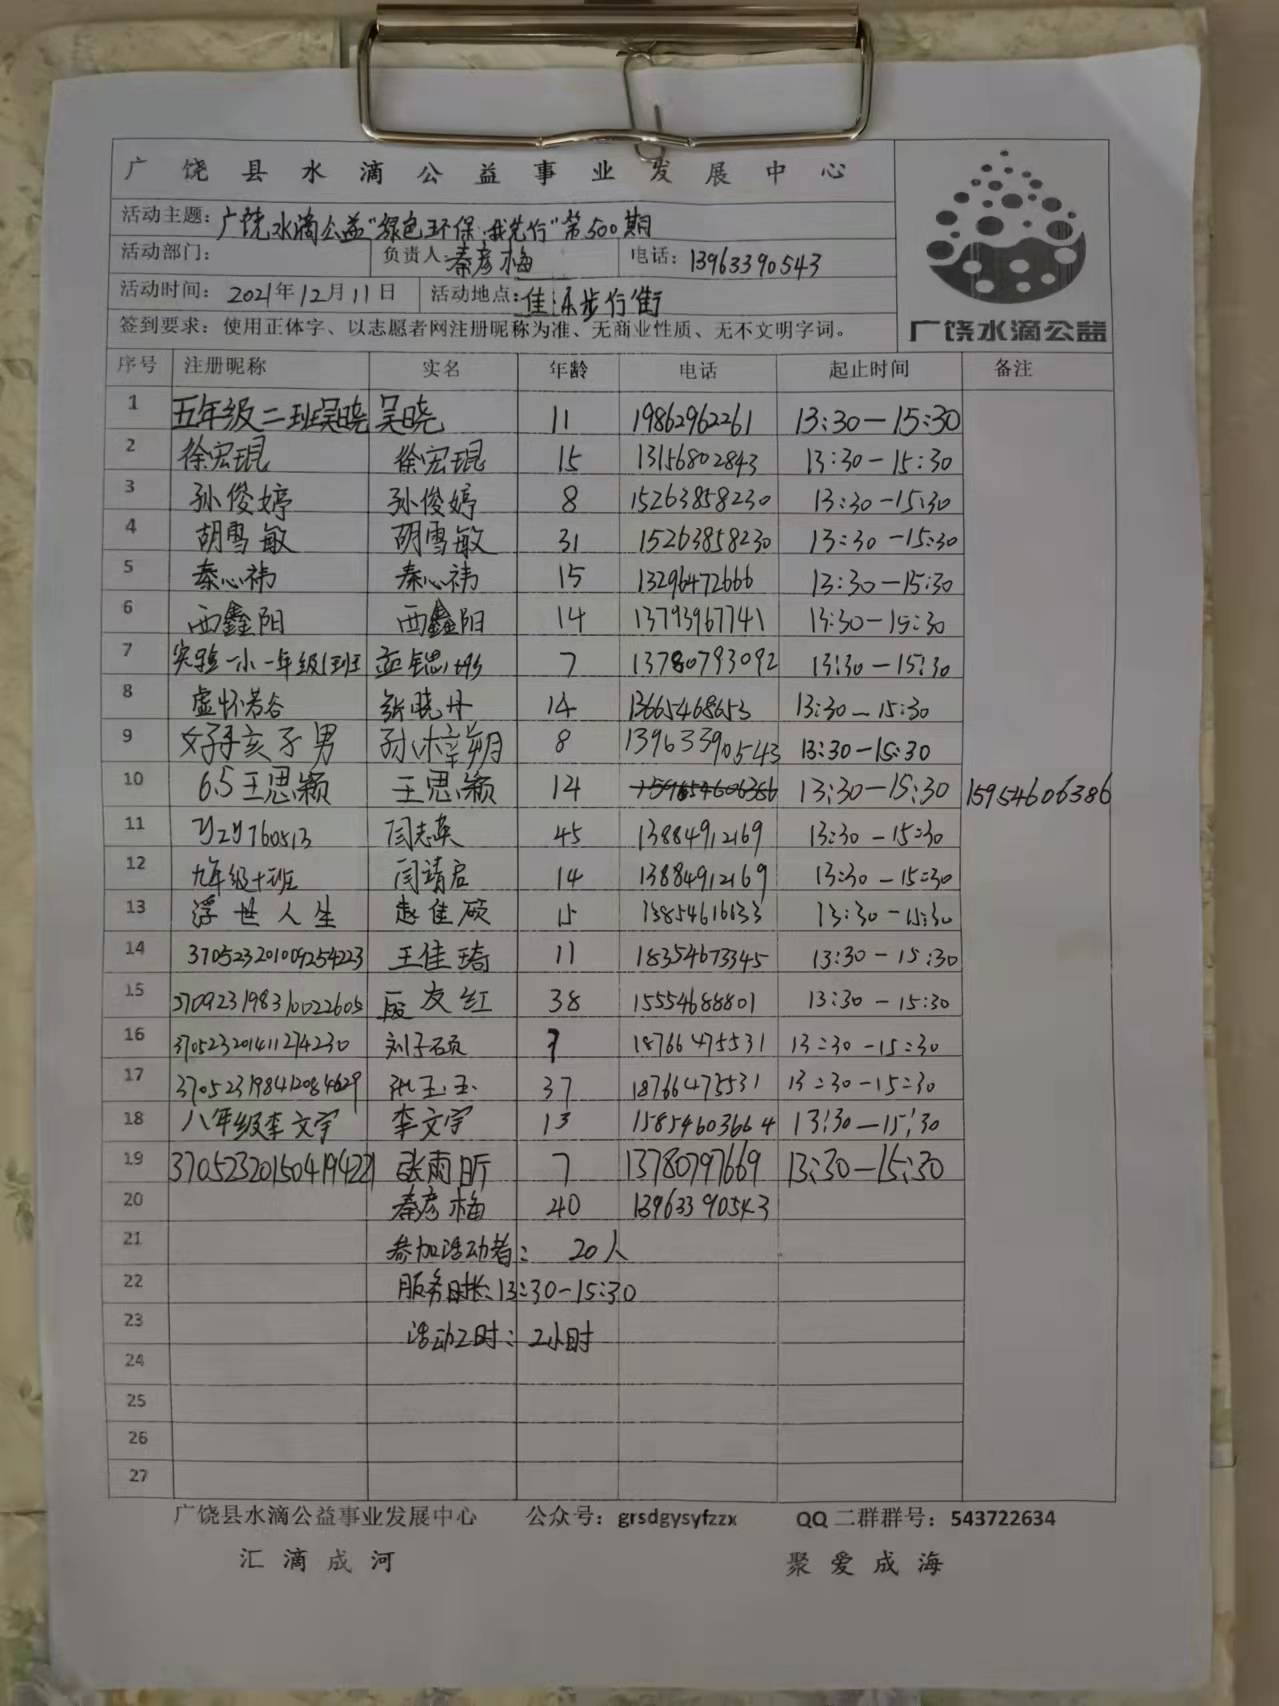 广饶县水滴公益事业发展中心
活动主题：广饶水滴公益“绿色环保·我先行”第500期
活动部门： 负责人：秦彦梅 电话：13963390543
活动时间：2021年12月11日 活动地点：佳乐步行街
签到要求：使用正体字、以志愿者网注册昵称为准、无商业性质、无不文明字词。
广饶水滴公益
序号 注册昵称 实名 年龄 电话 起止时间 备注
1 五年级二班吴晓 吴晓 11 19862962261 13:30—15:30
2 徐宏琨 徐宏琨 15 13156802843 13:30—15:30
3 孙俊婷 孙俊婷 8 15263858230 13:30—15:30
4 胡雪敏 胡雪敏 31 15263858230 13:30—15:30
5 秦心祎 秦心祎 15 13296472666 13:30—15:30
6 西鑫阳 西鑫阳 14 13793967741 13:30—15:30
7 实验一小一年级1班 7 13780793092 13:30—15:30
8 虚怀若谷 张晓丹 14 13665468653 13:30—15:30
9 女子孩子男 孙梓朔 8 13963390543 13:30—15:30
10 6.5王思颖 王思颖 14 13:30—15:30 15954606386
11 闫志英 45 13884912169 13:30—15:30
12 九年级十班 闫靖启 14 13884912169 13:30—15:30
13 浮世人生 赵佳硕 15 13:30—15:30
14 370523201009254223 王佳琦 11 18354673345 13:30—15:30
15 370923198310022605 段友红 38 15554688801 13:30—15:30
16 370523201411274230 刘子硕 7 18766475531 13:30—15:30
17 370523198412084629 张玉玉 37 18766475531 13:30—15:30
18 八年级李文宇 李文宇 13 15854603664 13:30—15:30
19 张雨昕 7 13780797669 13:30—15:30
20 秦彦梅 40 13963390543
21 参加活动者：20人
22 服务时长：13:30—15:30
23 活动工时：2小时
24
25
26
27
广饶县水滴公益事业发展中心 公众号：grsdgysyfzzx QQ二群群号：543722634
汇滴成河 聚爱成海